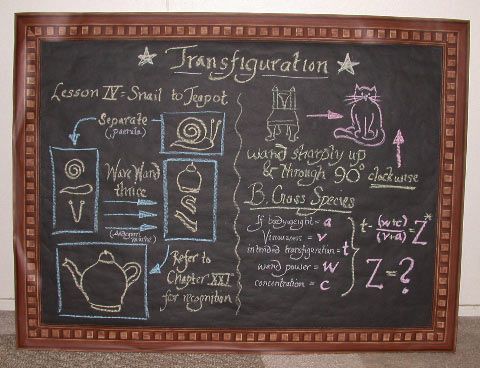 Transfiguration
Lesson IV = Snail to Teapot
Separate
Wave Wand
thrice
Refer to
Chapter XXI
for recognition
wand sharply up
& through 90° clockwise
B. Cross Species
If bodyweight = a
Viciousness = v
intended transfiguration = t
wand power = w
concentration = c
t - (w+c)/(v+a) = Z*
Z = ?